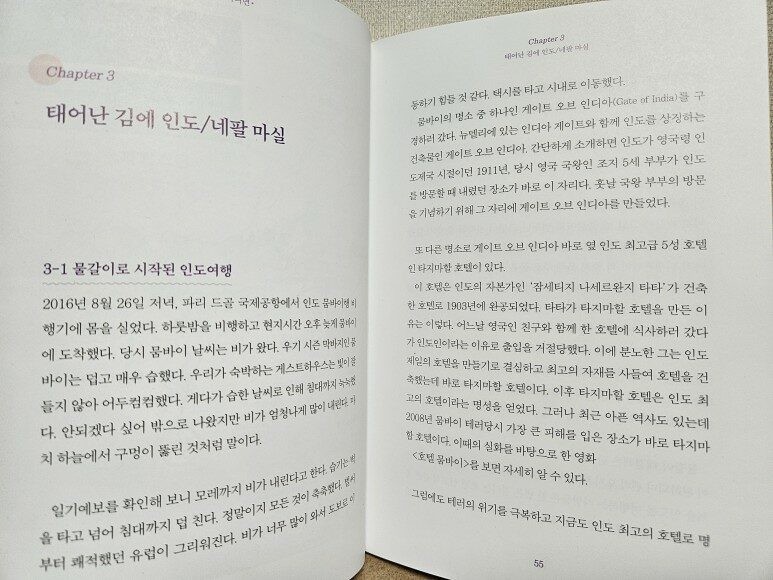 Chapter 3
태어난 김에 인도/네팔 마실
3-1 물갈이로 시작된 인도여행
2016년 8월 26일 저녁, 파리 드골 국제공항에서 인도 뭄바이행 비
행기에 몸을 실었다. 하룻밤을 비행하고 현지시간 오후 늦게 뭄바이
에 도착했다. 당시 뭄바이 날씨는 비가 왔다. 우기 시즌 막바지인 뭄
바이는 덥고 매우 습했다. 우리가 숙박하는 게스트하우스는 빛이 잘
들지 않아 어두컴컴했다. 게다가 습한 날씨로 인해 침대까지 눅눅했
다. 안되겠다 싶어 밖으로 나왔지만 비가 엄청나게 많이 내린다. 마
치 하늘에서 구멍이 뚫린 것처럼 말이다.
일기예보를 확인해 보니 모레까지 비가 내린다고 한다. 습기는 벽
을 타고 넘어 침대까지 덮 친다. 정말이지 모든 것이 축축했다. 벌써
부터 쾌적했던 유럽이 그리워진다. 비가 너무 많이 와서 도보로 이
Chapter 3
태어난 김에 인도/네팔 마실
동하기 힘들 것 같다. 택시를 타고 시내로 이동했다.
뭄바이의 명소 중 하나인 게이트 오브 인디아(Gate of India)를 구
경하러 갔다. 뉴델리에 있는 인디아 게이트와 함께 인도를 상징하는
건축물인 게이트 오브 인디아. 간단하게 소개하면 인도가 영국령 인
도제국 시절이던 1911년, 당시 영국 국왕인 조지 5세 부부가 인도
를 방문할 때 내렸던 장소가 바로 이 자리다. 훗날 국왕 부부의 방문
을 기념하기 위해 그 자리에 게이트 오브 인디아를 만들었다.
또 다른 명소로 게이트 오브 인디아 바로 옆 인도 최고급 5성 호텔
인 타지마할 호텔이 있다.
이 호텔은 인도의 자본가인 '잠세티지 나세르완지 타타'가 건축
한 호텔로 1903년에 완공되었다. 타타가 타지마할 호텔을 만든 이
유는 이렇다. 어느날 영국인 친구와 함께 한 호텔에 식사하러 갔다
가 인도인이라는 이유로 출입을 거절당했다. 이에 분노한 그는 인도
제일의 호텔을 만들기로 결심하고 최고의 자재를 사들여 호텔을 건
축했는데 바로 타지마할 호텔이다. 이후 타지마할 호텔은 인도 최
고의 호텔이라는 명성을 얻었다. 그러나 최근 아픈 역사도 있는데
2008년 뭄바이 테러당시 가장 큰 피해를 입은 장소가 바로 타지마
할 호텔이다. 이때의 실화를 바탕으로 한 영화
<호텔 뭄바이>를 보면 자세히 알 수 있다.
그럼에도 테러의 위기를 극복하고 지금도 인도 최고의 호텔로 명
55